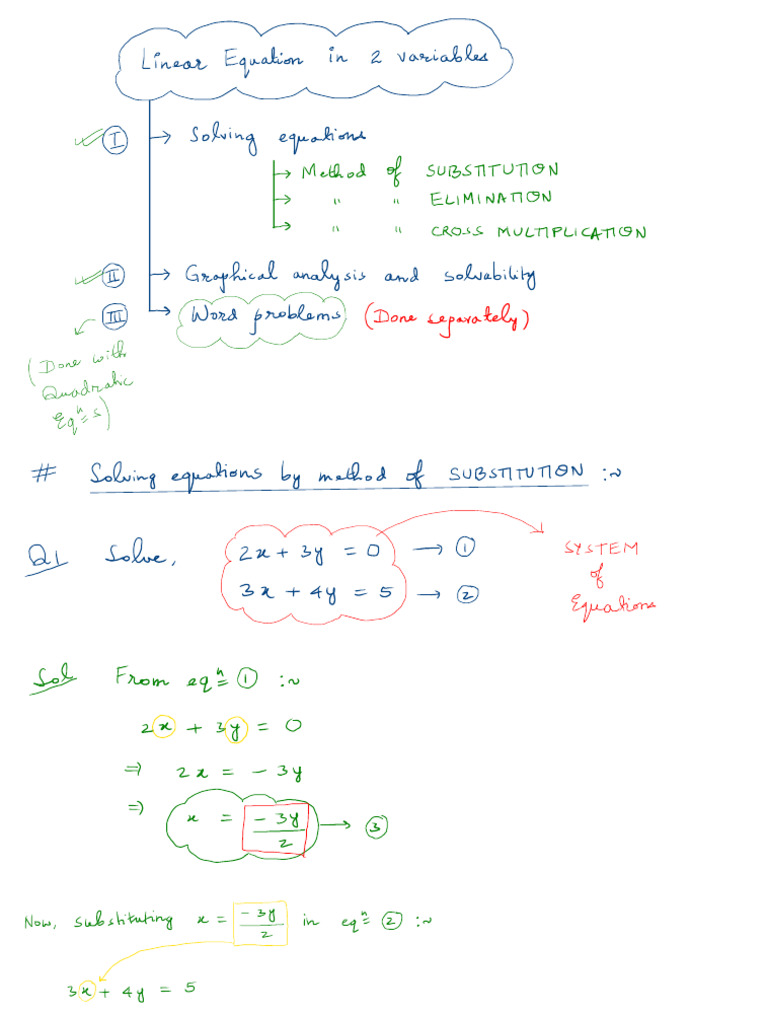 Linear Equation in 2 variables
I → Solving equations
→ Method of SUBSTITUTION
→ " " ELIMINATION
→ " " CROSS MULTIPLICATION
II → Graphical analysis and solvability
III → Word problems (Done separately)
(Done with
Quadratic
Eqⁿs)
# Solving equations by method of SUBSTITUTION :~
Q1 Solve, 2x + 3y = 0 → ①
3x + 4y = 5 → ②
SYSTEM
of
Equations
Sol From eqⁿ ① :~
2x + 3y = 0
⇒ 2x = - 3y
⇒ x = - 3y / 2 → ③
Now, substituting x = - 3y / 2 in eqⁿ ② :~
3x + 4y = 5